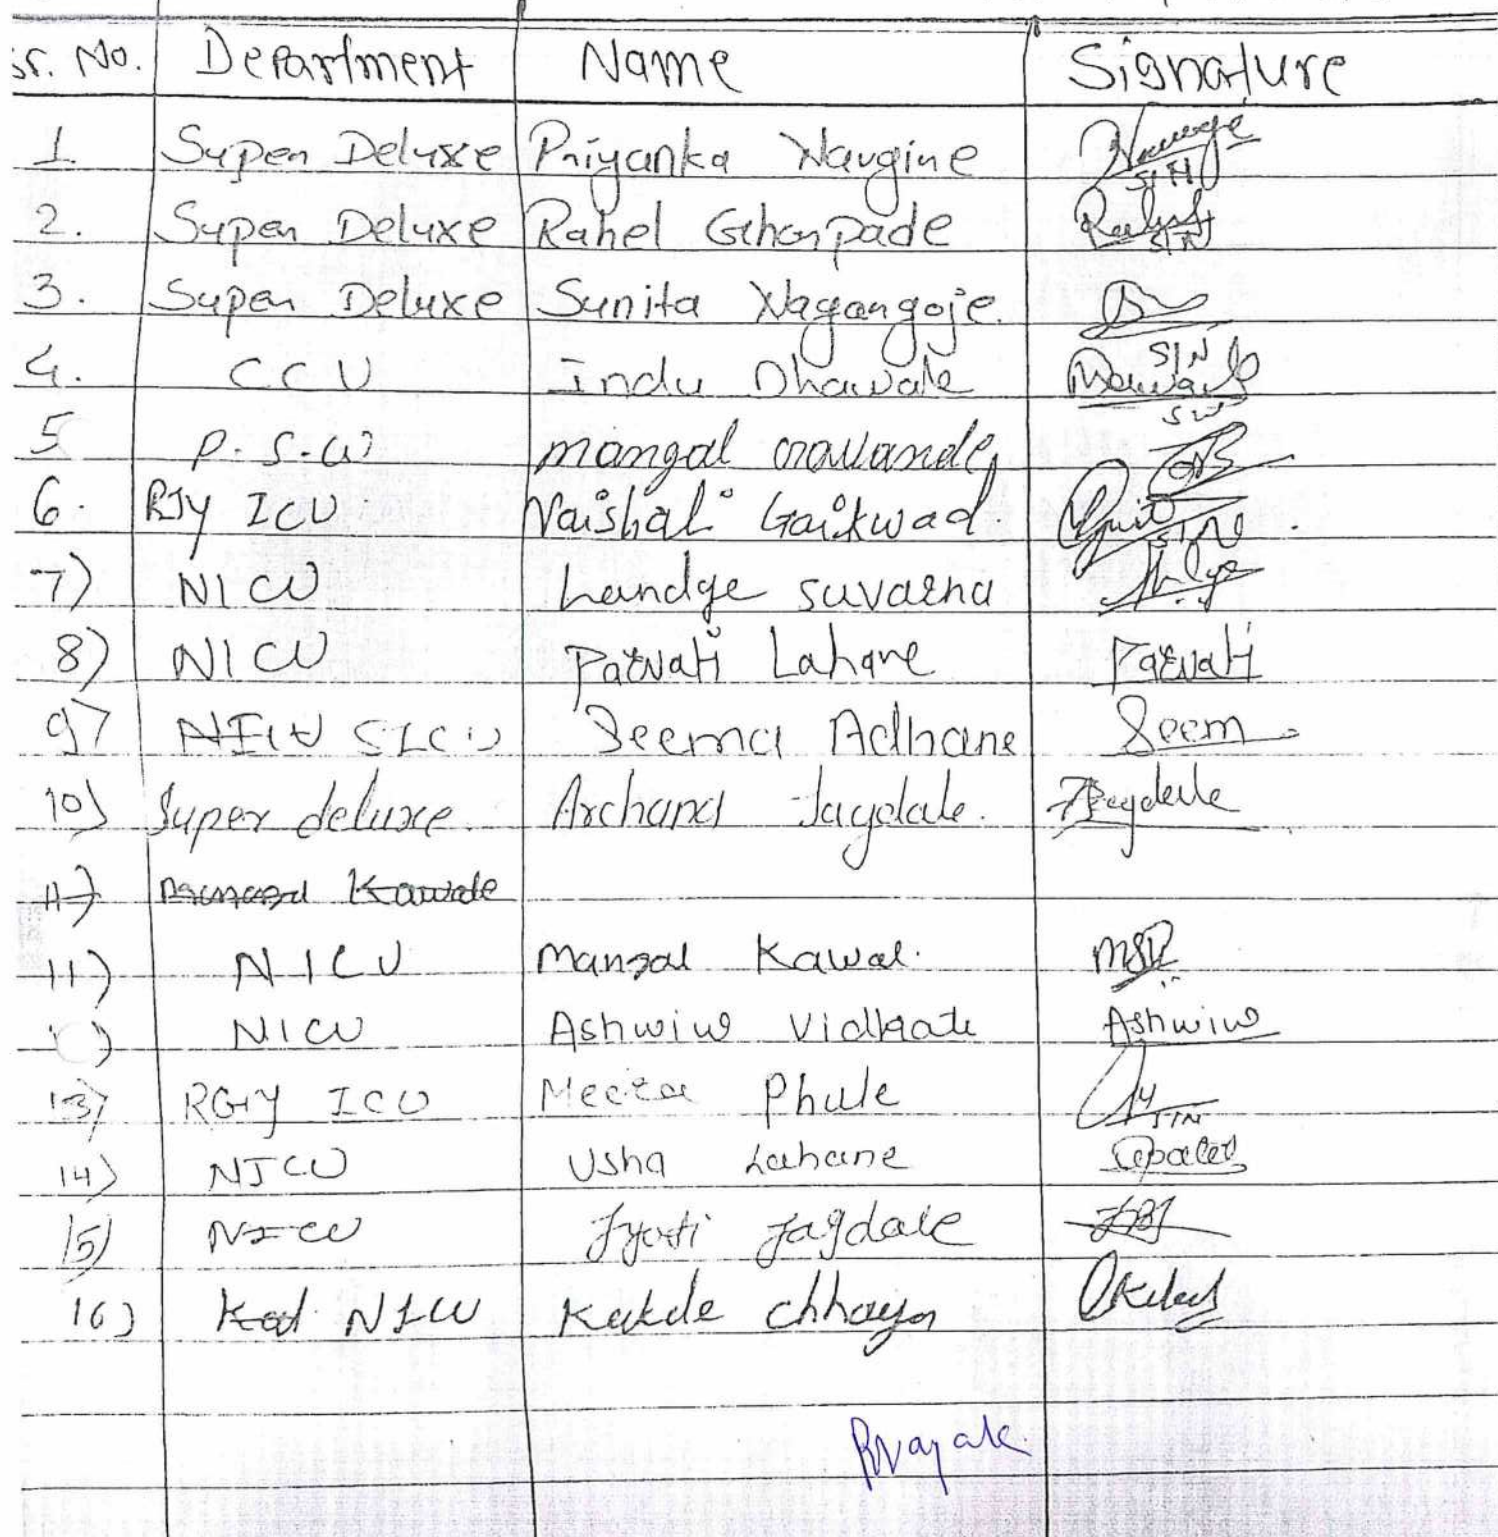 Sr. No. Department Name Signature
1. Super Deluxe Priyanka Navgine
S/N
2. Super Deluxe Rahel Ghorpade
S/N
3. Super Deluxe Sunita Nagangoje.
S/N
4. CCU Indu Dhawale
S/N
5 P.S.W mangal
6. RJY ICU Vaishali Gaikwad.
S/N
7) NICU Landge suvarna
8) NICU Parvati Lahane Parvati
9) SICU Seema Adhane Seem
10) Super deluxe. Archana Jagdale. Jagdale
11) Kawale
11) NICU Mangal Kawal.
) NICU Ashwiw Vidhate Ashwiw
13) RGJY ICU Meera Phule
S/N
14) NICU Usha Lahane
15) NICU Jyoti Jagdale
16) NICU Kakde chhaya